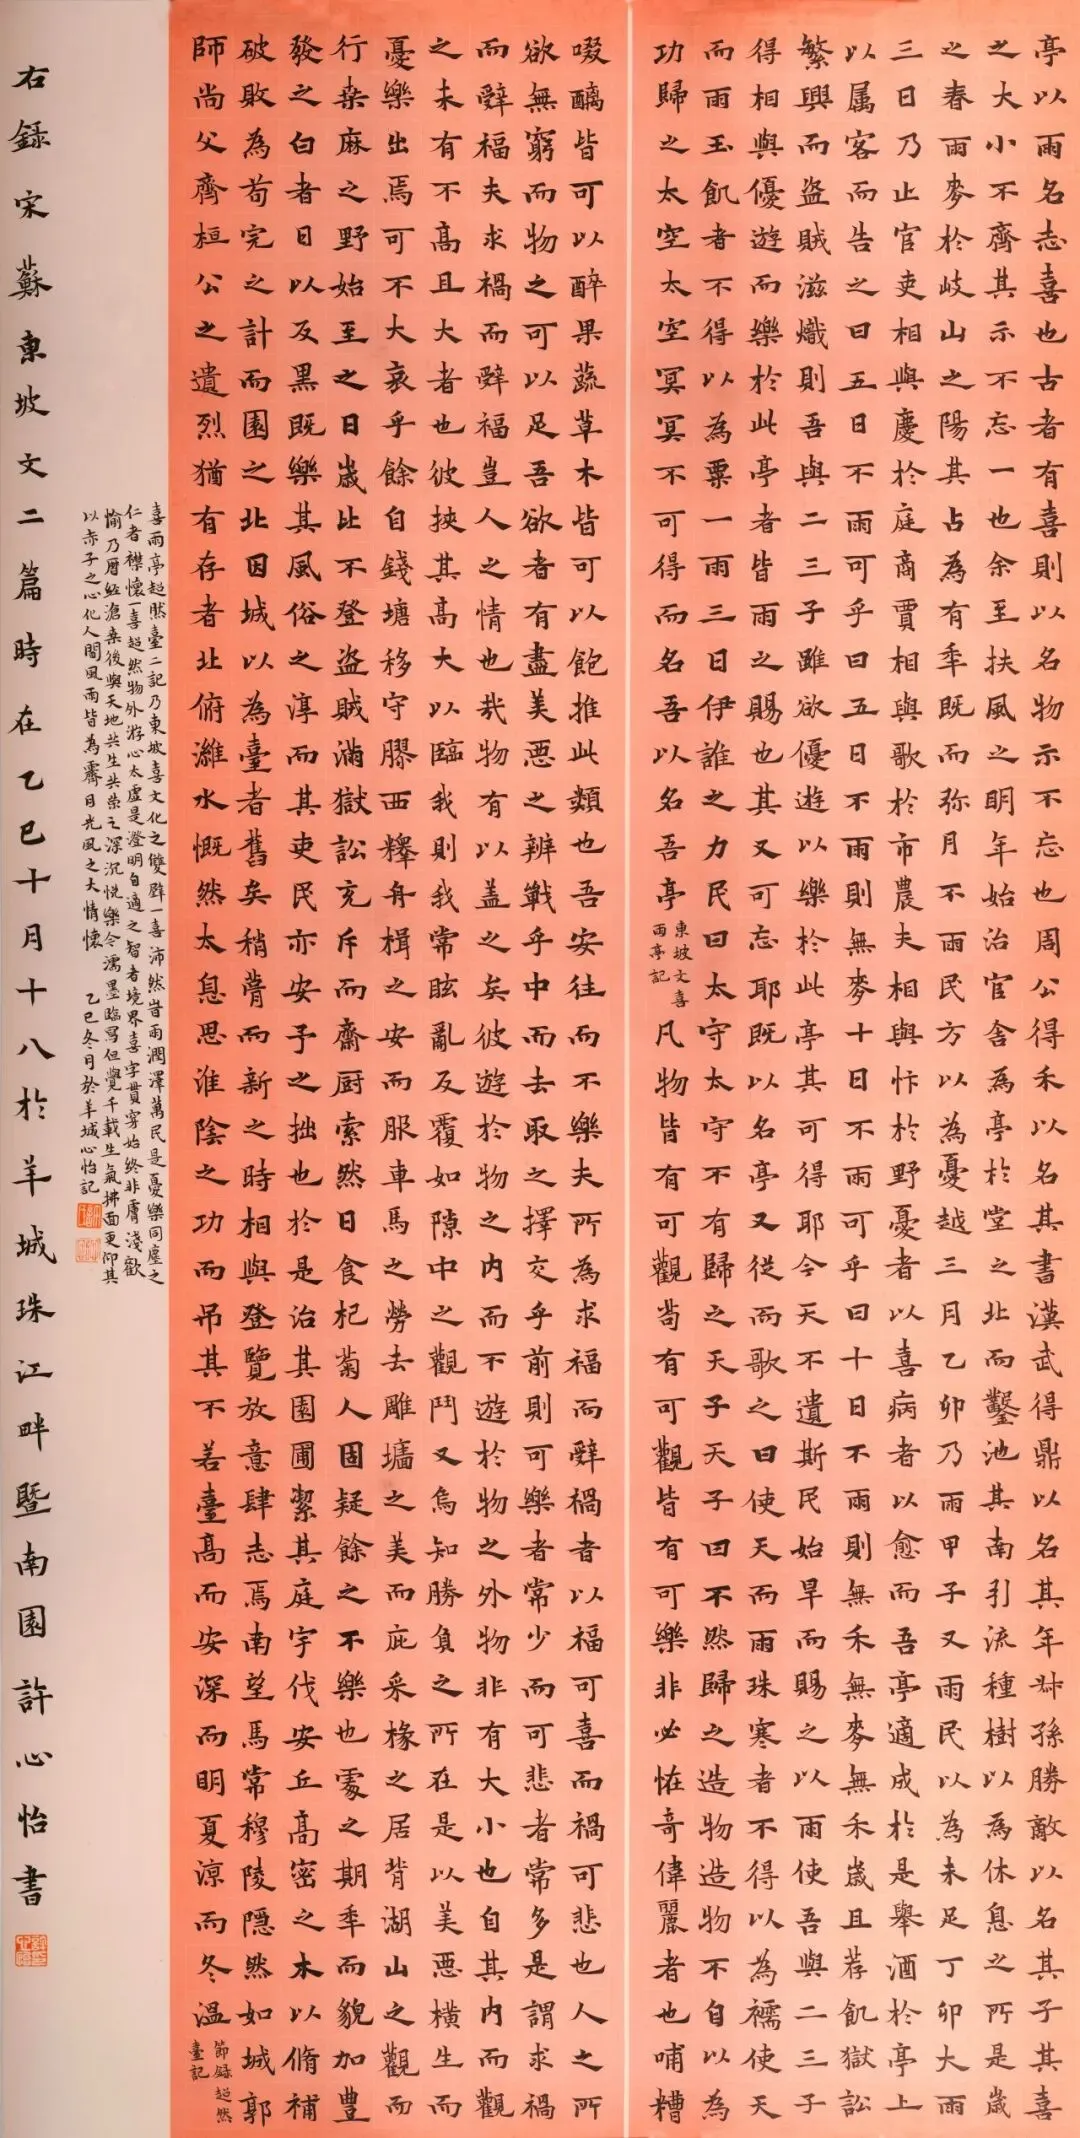 亭以雨名志喜也古者有喜則以名物示不忘也周公得禾以名其書漢武得鼎以名其年叔孫勝敵以名其子其喜
之大小不齊其示不忘一也余至扶風之明年始治官舍為亭於堂之北而鑿池其南引流種樹以為休息之所是歲
之春雨麥於岐山之陽其占為有秊既而弥月不雨民方以為憂越三月乙卯乃雨甲子又雨民以為未足丁卯大雨
三日乃止官吏相與慶於庭商賈相與歌於市農夫相與忭於野憂者以喜病者以愈而吾亭適成於是舉酒於亭上
以属客而告之曰五日不雨可乎曰五日不雨則無麥十日不雨可乎曰十日不雨則無禾無麥無禾歲且荐飢獄訟
繁興而盜賊滋熾則吾與二三子雖欲優遊以樂於此亭其可得耶今天不遺斯民始旱而賜之以雨使吾與二三子
得相與優遊而樂於此亭者皆雨之賜也其又可忘耶既以名亭又從而歌之曰使天而雨珠寒者不得以為襦使天
而雨玉飢者不得以為粟一雨三日伊誰之力民曰太守太守不有歸之天子天子曰不然歸之造物造物不自以為
功歸之太空太空冥冥不可得而名吾以名吾亭東坡文喜雨亭記凡物皆有可觀苟有可觀皆有可樂非必恠奇偉麗者也哺糟
啜醨皆可以醉果蔬草木皆可以飽推此類也吾安往而不樂夫所為求福而辭禍者以福可喜而禍可悲也人之所
欲無窮而物之可以足吾欲者有盡美惡之辨戰乎中而去取之擇交乎前則可樂者常少而可悲者常多是謂求禍
而辭福夫求禍而辭福豈人之情也哉物有以盖之矣彼遊於物之内而不遊於物之外物非有大小也自其内而觀
之未有不高且大者也彼挾其高大以臨我則我常眩亂反覆如隙中之觀鬥又烏知勝負之所在是以美惡橫生而
憂樂出焉可不大哀乎餘自錢塘移守膠西釋舟楫之安而服車馬之勞去雕墻之美而庇采椽之居背湖山之觀而
行桑麻之野始至之日歲比不登盜賊滿獄訟充斥而齋厨索然日食杞菊人固疑餘之不樂也處之期秊而貌加豊
發之白者日以反黑既樂其風俗之淳而其吏民亦安予之拙也於是治其園圃潔其庭宇伐安丘高密之木以脩補
破敗為苟完之計而園之北因城以為臺者舊矣稍葺而新之時相與登覽放意肆志焉南望馬常穆陵隱然如城郭
師尚父齊桓公之遺烈猶有存者北俯濰水慨然太息思淮陰之功而吊其不若臺高而安深而明夏涼而冬温節録超然臺記
喜雨亭超然臺二記乃東坡喜文化之雙璧一喜沛然時雨潤澤萬民是憂樂同塵之
仁者襟懷一喜超然物外游心太虛是澄明自適之智者境界喜字貫穿始終非膚淺歡
愉乃曆經滄桑後與天地共生共榮之深沉悦樂今濡墨臨寫但覺千載生氣拂面更仰其
以赤子之心化人間風雨皆為霽月光風之大情懷 乙巳冬月於羊城心怡記
右録宋蘇東坡文二篇時在乙巳十月十八於羊城珠江畔暨南園許心怡書